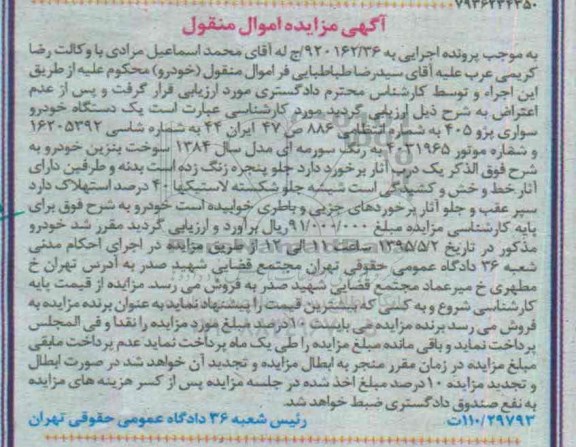 ۷۹۳۶۲۳۴۳۵۰
آگهی مزایده اموال منقول
به موجب پرونده اجرایی به ۹۲۰۱۶۲/۳۶/ج له آقای محمد اسماعیل مرادی با وکالت رضا
کریمی عرب علیه آقای سیدرضا طباطبایی فر اموال منقول (خودرو) محکوم علیه از طریق
این اجراء و توسط کارشناس محترم دادگستری مورد ارزیابی قرار گرفت و پس از عدم
اعتراض به شرح ذیل ارزیابی گردید مورد کارشناسی عبارت است یک دستگاه خودرو
سواری پژو ۴۰۵ به شماره انتظامی ۸۸۶ ص ۴۷ ایران ۴۴ به شماره شاسی ۱۶۲۰۵۳۹۲
و شماره موتور ۴۰۳۱۹۶۵ به رنگ سورمه ای مدل سال ۱۳۸۴ سوخت بنزین خودرو به
شرح فوق الذکر یک درب آثار برخورد دارد جلو پنجره زنگ زده است بدنه و طرفین دارای
آثار خط و خش و کشیدگی است شیشه جلو شکسته لاستیکها ۴۰ درصد استهلاک دارد
سپر عقب و جلو آثار برخوردهای جزیی و باطری خوابیده است خودرو به شرح فوق برای
پایه کارشناسی مزایده مبلغ ۹۱/۰۰۰/۰۰۰ ریال برآورد و ارزیابی گردید مقرر شد خودرو
مذکور در تاریخ ۱۳۹۵/۵/۲ ساعت ۱۱ الی ۱۲ از طریق مزایده در اجرای احکام مدنی
شعبه ۳۶ دادگاه عمومی حقوقی تهران مجتمع قضایی شهید صدر به آدرس تهران خ
مطهری خ میرعماد مجتمع قضایی شهید صدر به فروش می رسد. مزایده از قیمت پایه
کارشناسی شروع و به کسی که بیشترین قیمت را پیشنهاد نماید به عنوان برنده مزایده به
فروش می رسد برنده مزایده می بایست ۱۰ درصد مبلغ مورد مزایده را نقدا و فی المجلس
پرداخت نماید و باقی مانده مبلغ مزایده را طی یک ماه پرداخت نماید عدم پرداخت مابقی
مبلغ مزایده در زمان مقرر منجر به ابطال مزایده و تجدید آن خواهد شد. در صورت ابطال
و تجدید مزایده ۱۰ درصد مبلغ اخذ شده در جلسه مزایده پس از کسر هزینه های مزایده
به نفع صندوق دادگستری ضبط خواهد شد.
۱۱۰/۲۹۷۹۳ت رئیس شعبه ۳۶ دادگاه عمومی حقوقی تهران